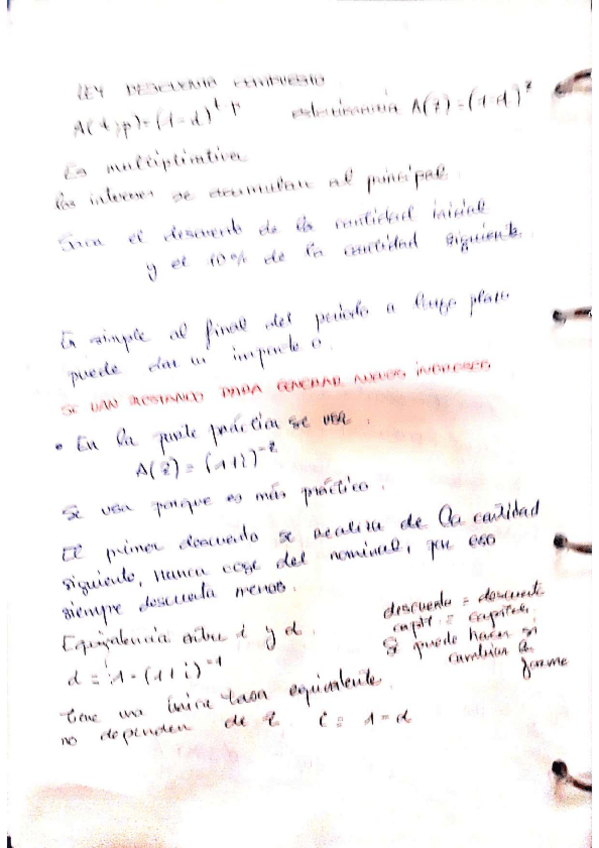 LEY DESCUENTO COMPUESTO
A(t,p)=(1-d)^t-p estacionaria A(z)=(1-d)^z
Es multiplicativa
los intereses se acumulan al principal.
el descuento de la cantidad inicial
y el 10% de la cantidad siguiente.
En simple al final del periodo a largo plazo
puede dar un importe 0.
SE VAN RESTANDO PARA GENERAR NUEVOS INTERESES
• En la parte práctica se usa :
A(z)=(1+i)^-z
Se usa porque es más práctico.
El primer descuento se realiza de la cantidad
siguiente, nunca coge del nominal, por eso
siempre descuenta menos.
Equivalencia entre i y d.
d = 1-(1+i)^-1
descuento = descuento
capit = capitaliz.
Se puede hacer si
cambian la
forma
tiene una única tasa equivalente.
no dependen de z. i = 1-d